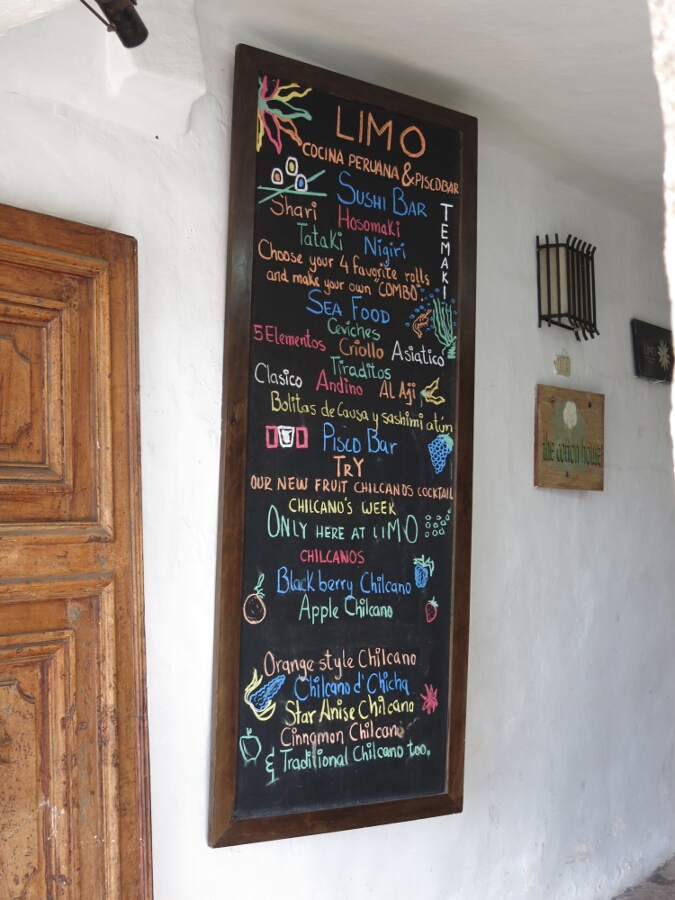 LIMO
COCINA PERUANA & PISCOBAR
SUSHI BAR
Shari Hosomaki
TEMAKI
Tataki Nigiri
Choose your 4 favorite rolls
and make your own "COMBO"
SEA FOOD
Ceviches
5 Elementos Criollo Asiatico
Tiraditos
Clasico Andino AL Aji
Bolitas de Causa y sashimi atún
PISCO BAR
TRY
OUR NEW FRUIT CHILCANOS COCKTAIL
CHILCANO'S WEEK
ONLY HERE AT LIMO
CHILCANOS
Blackberry Chilcano
Apple Chilcano
Orange style Chilcano
Chilcano d' Chicha
Star Anise Chilcano
Cinnamon Chilcano
& Traditional Chilcano too.
the cotton house
LIMO